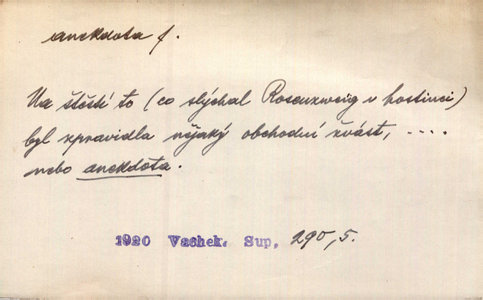 anekdota f.
Na štěstí to (co slýchal Rosenzweig v hostinci)
byl zpravidla nějaký obchodní zvást, ....
nebo anekdota.
1920 Vachek, Sup, 290,5.